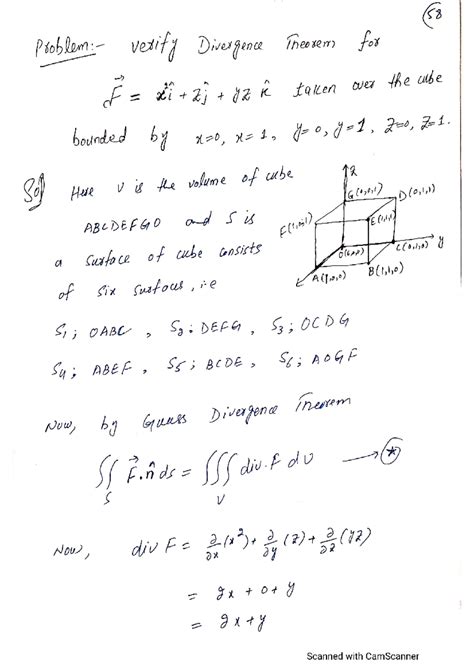 58
Problem:- verify Divergence Theorem for
F⃗ = x²î + zĵ + yz k̂ taken over the cube
bounded by x=0, x=1, y=0, y=1, z=0, z=1.
Sol) Here V is the volume of cube
ABCDEFGO and S is
a surface of cube consists
of six surfaces, i.e
z
G(0,0,1)
D(0,1,1)
F(1,0,1)
E(1,1,1)
O(0,0,0)
C(0,1,0)
y
A(1,0,0)
B(1,1,0)
x
S₁; OABC, S₂; DEFG, S₃; OCDG
S₄; ABEF, S₅; BCDE, S₆; AOGF
Now, by Gauss Divergence Theorem
∬_S F⃗.n̂ ds = ∭_V div.F dv → *
Now, div F = ∂/∂x (x²) + ∂/∂y (z) + ∂/∂z (yz)
= 2x + 0 + y
= 2x + y
Scanned with CamScanner